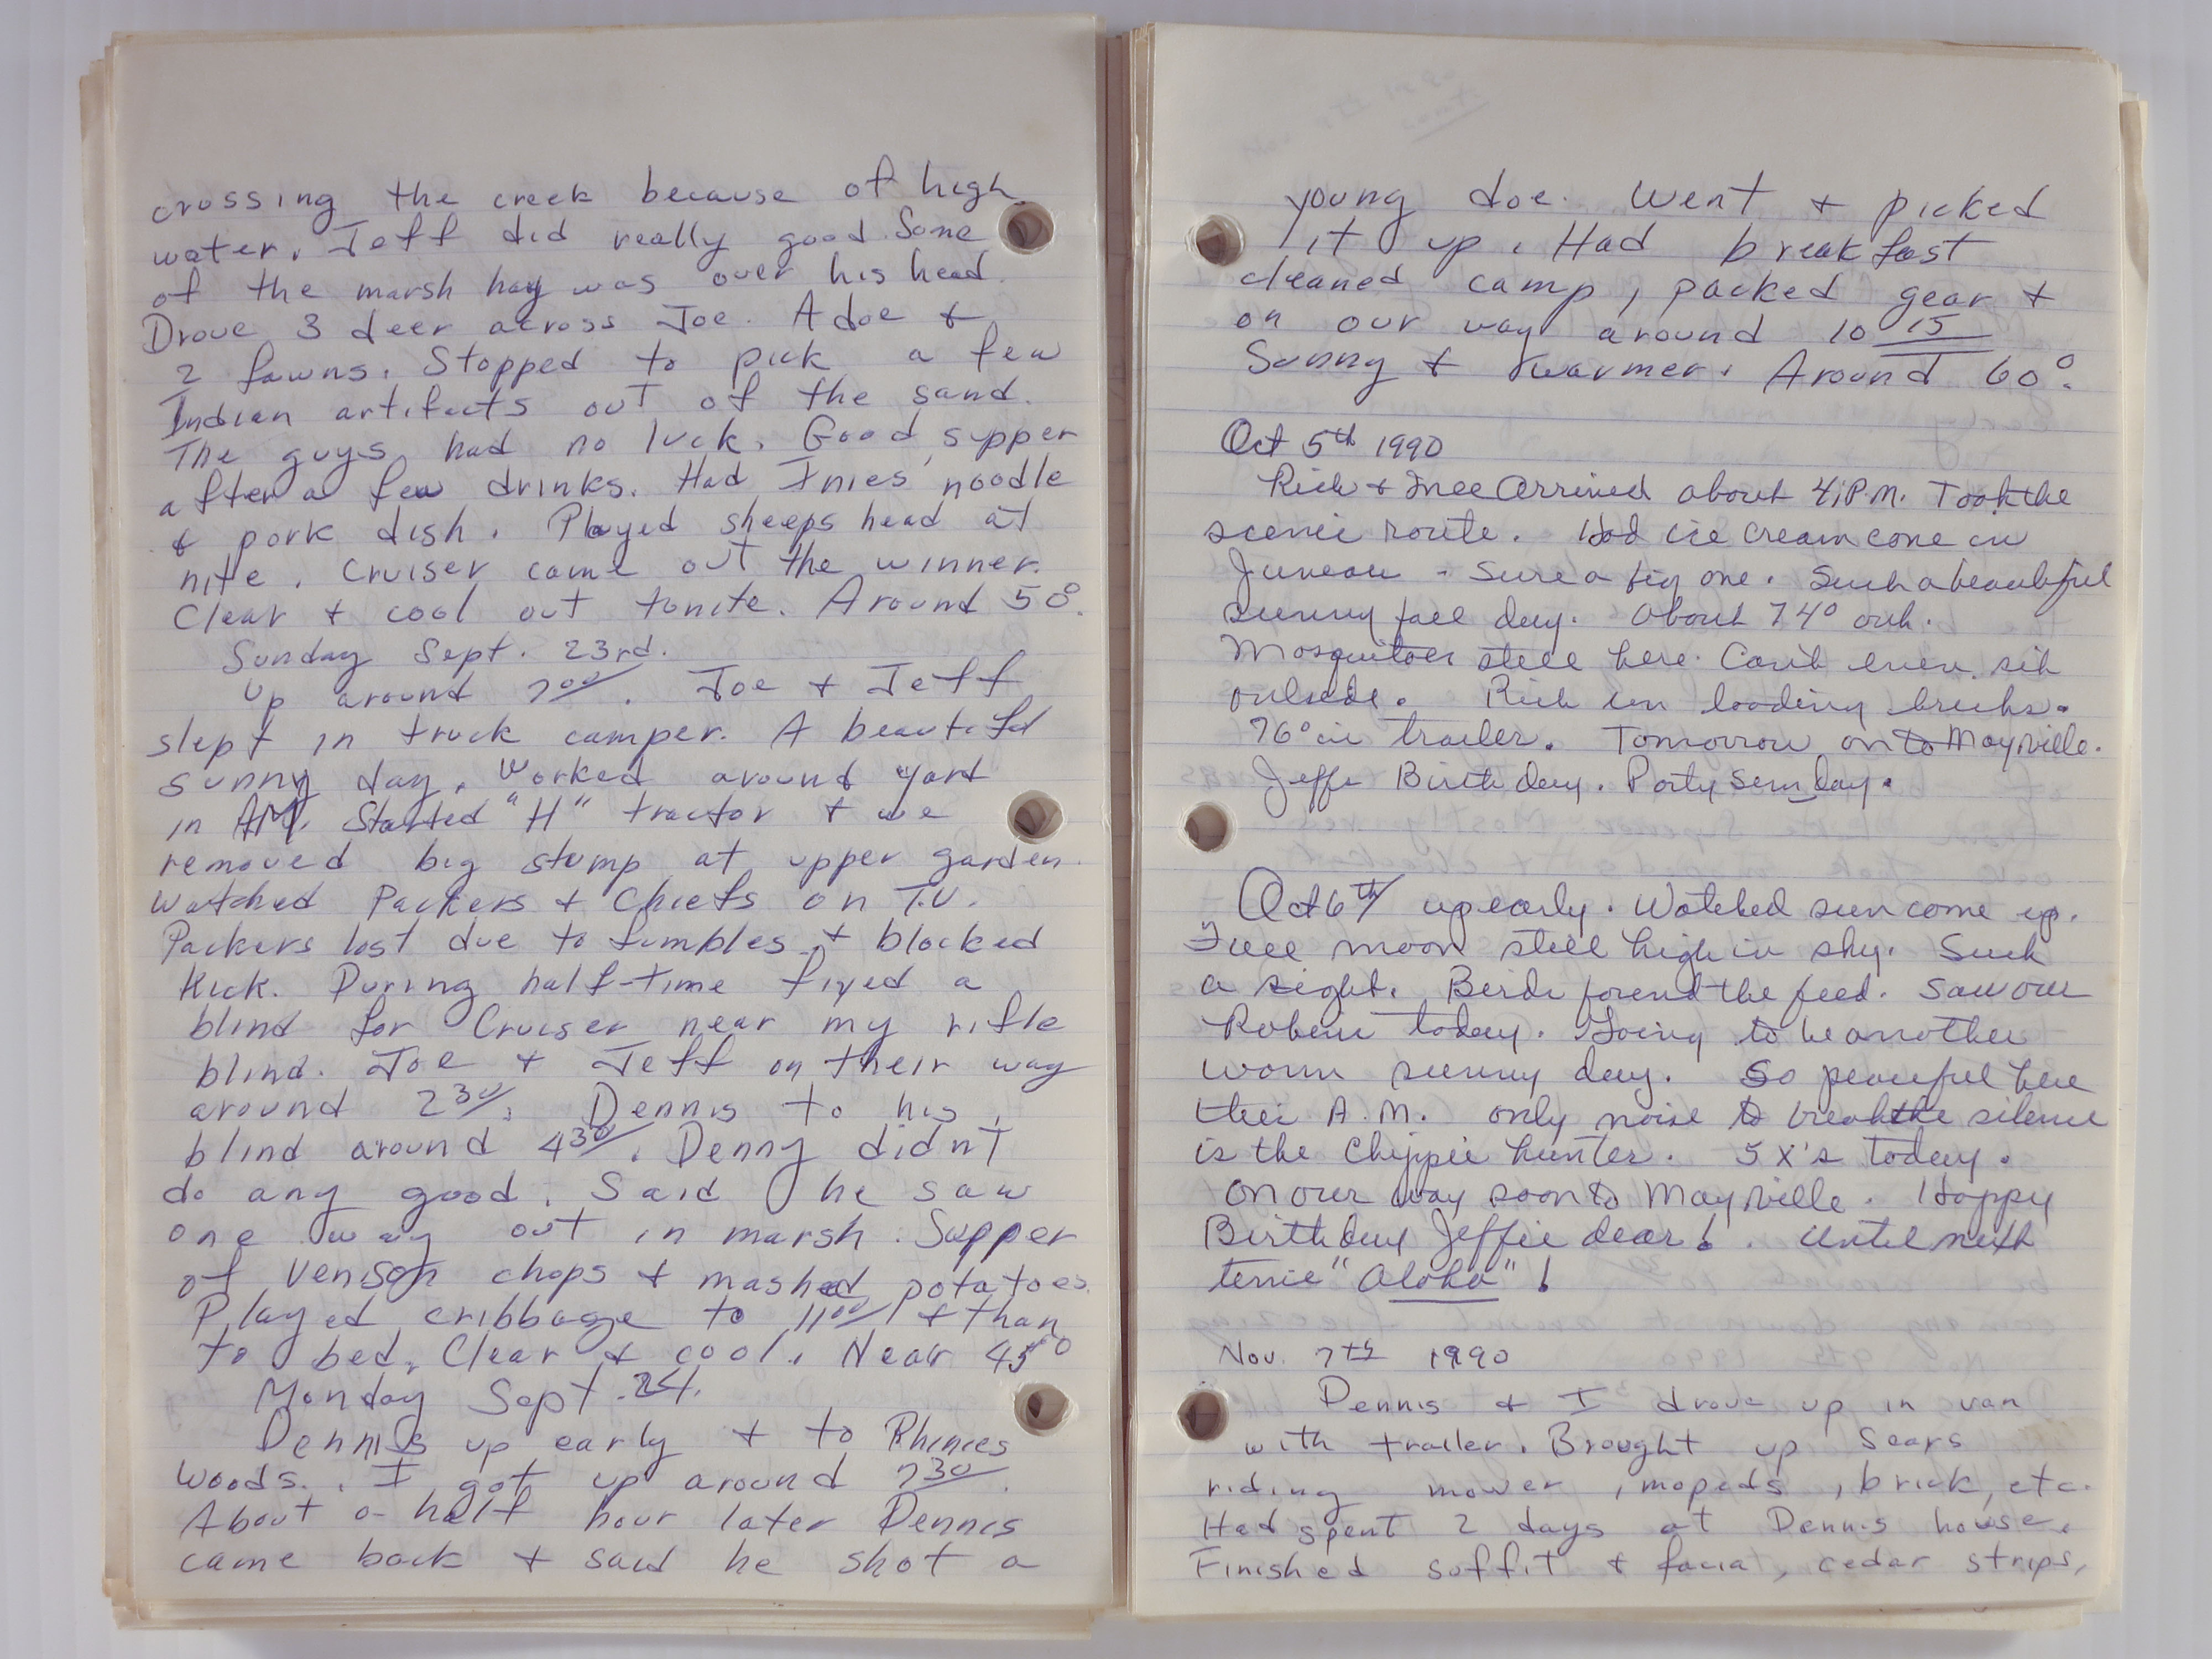 crossing the creek because of high
water. Jeff did really good. Some
of the marsh hay was over his head.
Drove 3 deer across Joe. A doe &
2 fawns. Stopped to pick a few
Indian artifacts out of the sand.
The guys had no luck. Good supper
after a few drinks. Had Inies noodle
& pork dish. Played sheeps head at
nite. Cruiser came out the winner.
Clear & cool out tonite. Around 50°.
Sunday Sept. 23rd.
Up around 7 00. Joe & Jeff
slept in truck camper. A beautiful
sunny day. Worked around yard
in AM. Started "H" tractor & we
removed big stump at upper garden.
Watched Packers & Chiefs on T.V.
Packers lost due to fumbles & blocked
kick. During half-time fixed a
blind for Cruiser near my rifle
blind. Joe & Jeff on their way
around 2 30. Dennis to his
blind around 4 30. Denny didn't
do any good. Said he saw
one way out in marsh. Supper
of venison chops & mashed potatoes.
Played cribbage to 11 00 & than
to bed. Clear & cool. Near 45°
Monday Sept. 24.
Dennis up early & to Rhinies
woods. I got up around 7 30.
About a half hour later Dennis
came back & said he shot a
young doe. Went & picked
it up. Had breakfast
cleaned camp, packed gear &
on our way around 10 15
Sunny & warmer. Around 60°.
Oct 5th 1990
Rich & Inee Arrived about 4 P.M. Took the
scenic route. Had ice cream cone in
Juneau - Sure a big one. Such a beautiful
sunny fall day. About 74° out.
Mosquitoes still here. Can't even sit
outside. Rich un loading bricks.
76° in trailer. Tomorrow on to Mayville.
Jeffs Birthday. Party Sunday.
Oct 6th up early. Watched sun come up.
Full moon still high in sky. Such
a sight. Birds found the feed. Saw our
Robin today. Going to be another
warm sunny day. So peaceful here
this A.M. only noise to break the silence
is the Chippie hunter. 5 X's today.
On our way soon to Mayville. Happy
Birthday Jeffie dear! . Until next
time "Aloha"!
Nov. 7th 1990
Dennis & I drove up in van
with trailer. Brought up Sears
riding mower, mopeds, brick, etc.
Had spent 2 days at Dennis house.
Finished soffit & facia, cedar strips,